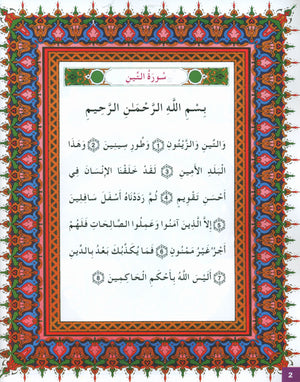 سُورَةُ التِّين
بِسْمِ اللَّهِ الرَّحْمَـٰنِ الرَّحِيمِ
وَالتِّينِ وَالزَّيْتُونِ ① وَطُورِ سِينِينَ ② وَهَذَا
الْبَلَدِ الْأَمِينِ ③ لَقَدْ خَلَقْنَا الْإِنْسَانَ فِي
أَحْسَنِ تَقْوِيمٍ ④ ثُمَّ رَدَدْنَاهُ أَسْفَلَ سَافِلِينَ
⑤ إِلاَّ الَّذِينَ آمَنُوا وَعَمِلُوا الصَّالِحَاتِ فَلَهُمْ
أَجْرٌ غَيْرُ مَمْنُونٍ ⑥ فَمَا يُكَذِّبُكَ بَعْدُ بِالدِّينِ
⑦ أَلَيْسَ اللَّهُ بِأَحْكَمِ الْحَاكِمِينَ ⑧
2